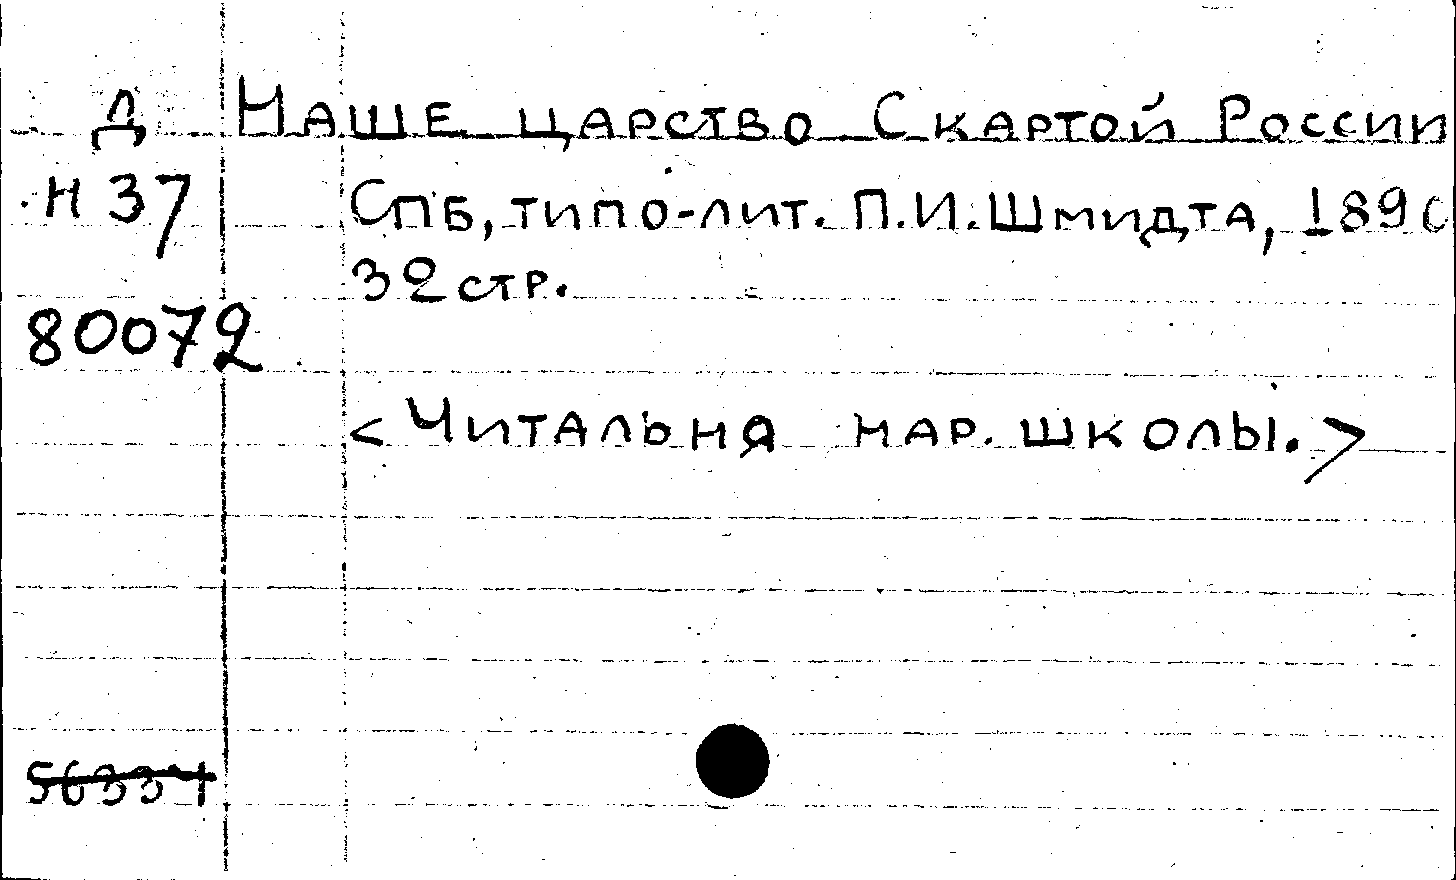 Д Наше царство С картой России
Н 37 СПБ, типо-лит. П.И.Шмидта, 1890
32 стр.
80072
<Читальня нар. школы.>